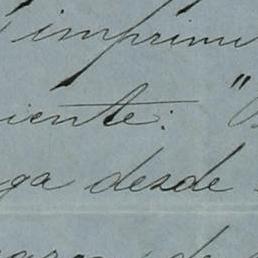 imprimi
iente: "
ga desde